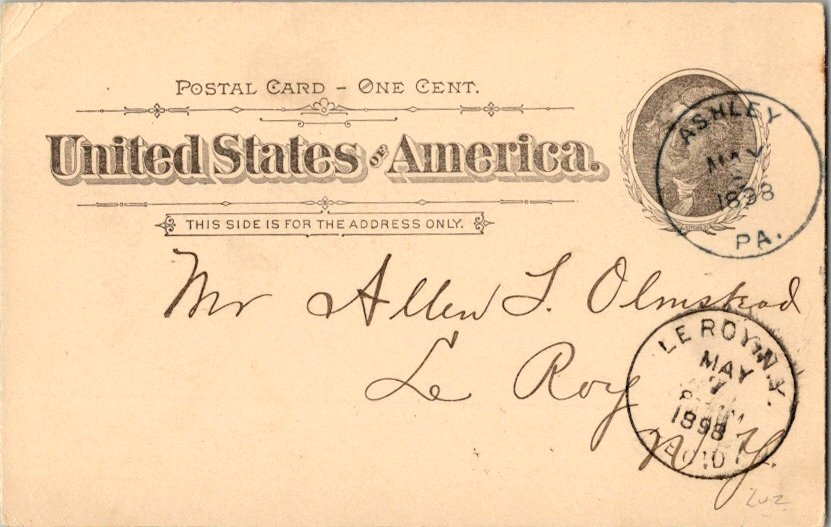 POSTAL CARD - ONE CENT.
United States OF America.
THIS SIDE IS FOR THE ADDRESS ONLY.
ASHLEY
MAY
1898
PA.
Mr Allen S. Olmstead
Le Roy
N.Y.
LE ROY, N.Y.
MAY
7
1898
REC'D
202